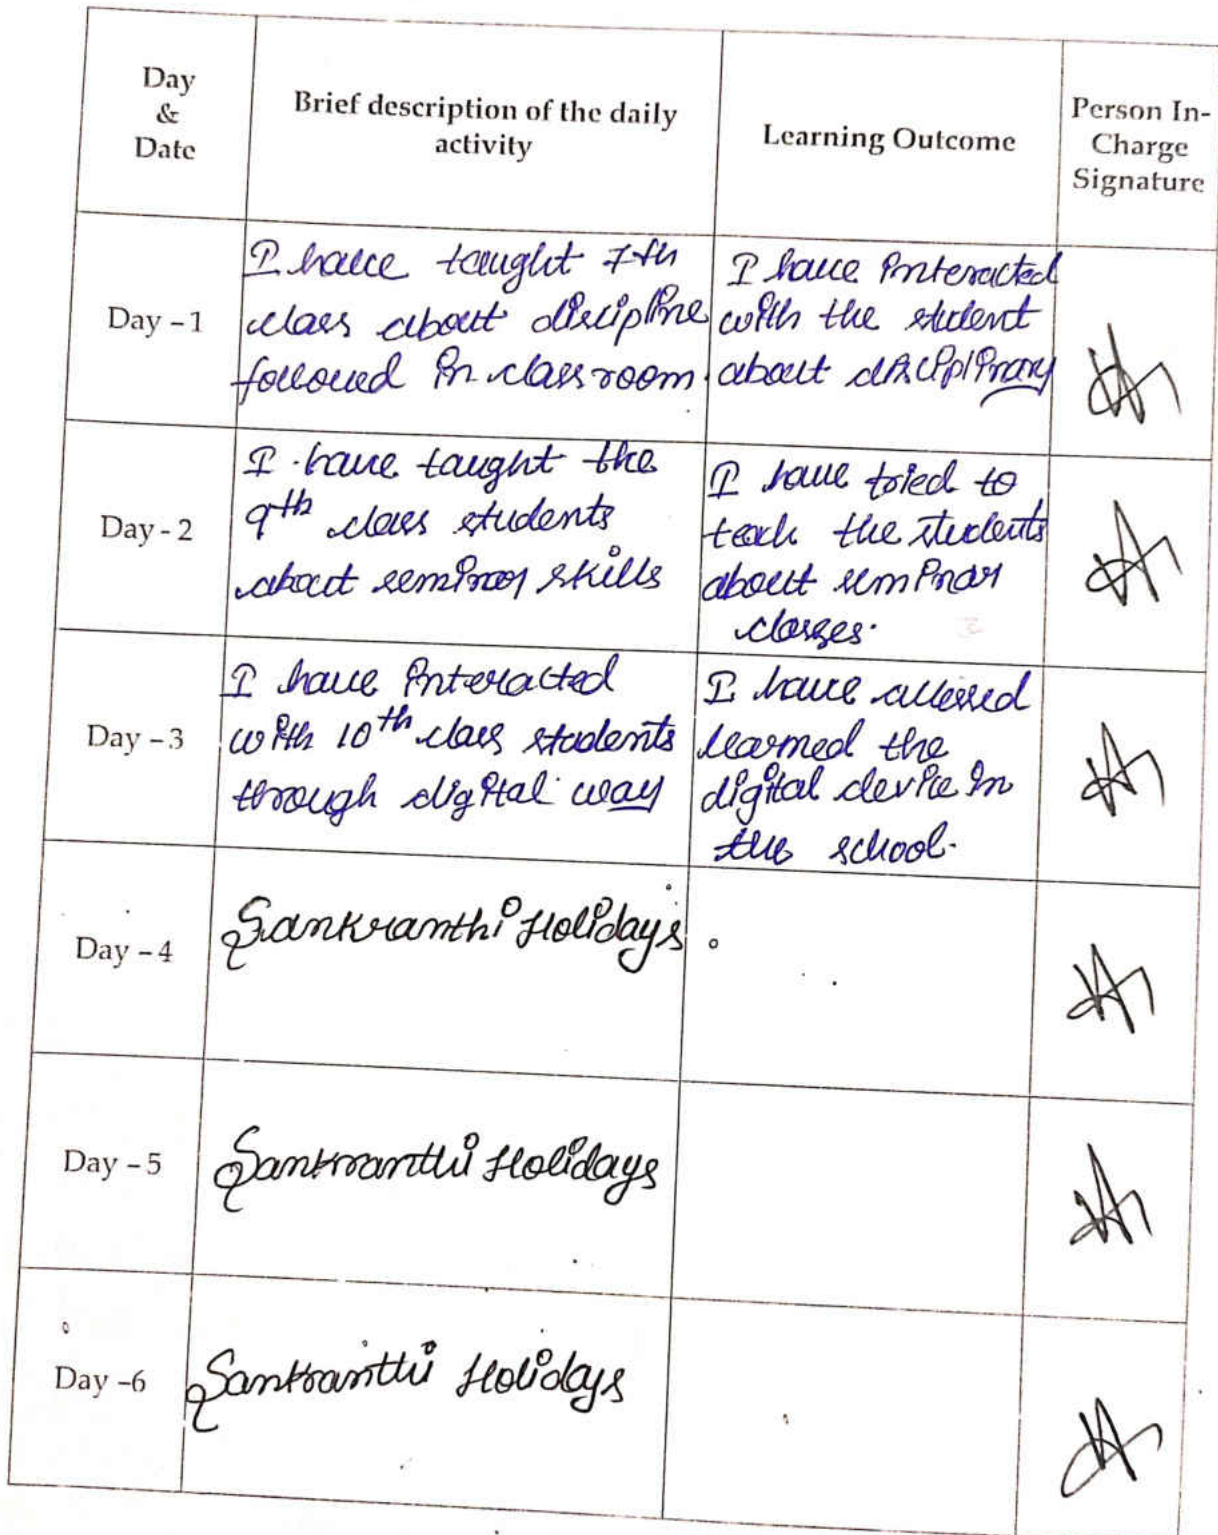 Day
&
Date
Brief description of the daily
activity
Learning Outcome
Person In-
Charge
Signature
Day - 1
I have taught 7th
class about discipline
followed in class room.
I have interacted
with the student
about disciplinary
Day - 2
I have taught the
9th class students
about seminar skills
I have tried to
teach the students
about seminar
classes.
Day - 3
I have interacted
with 10th class students
through digital way
I have
learned the
digital device in
the school.
Day - 4
Sankranthi Holidays.
Day - 5
Sankranthi Holidays
Day -6
Sankranthi Holidays